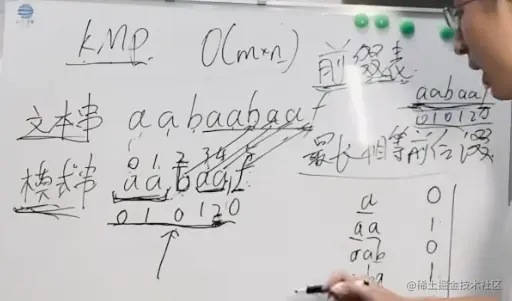 KMP O(m×n)
前缀表
aabaaf
010120
文本串 aabaabaaf
最长相等前后缀
0 1 2 3 4 5
模式串 aabaaf
0 1 0 1 2 0
a 0
aa 1
aab 0
1
@稀土掘金技术社区